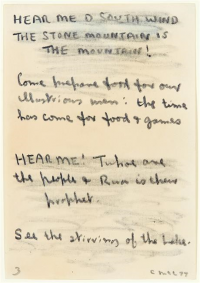 HEAR ME O SOUTH WIND
THE STONE MOUNTAIN IS
THE MOUNTAIN!
Come prepare food for our
illustrious men: the time
has come for food & games
HEAR ME! Tuhoe are
the people & Rua is their
prophet.
See the stirrings of the Lake.
3